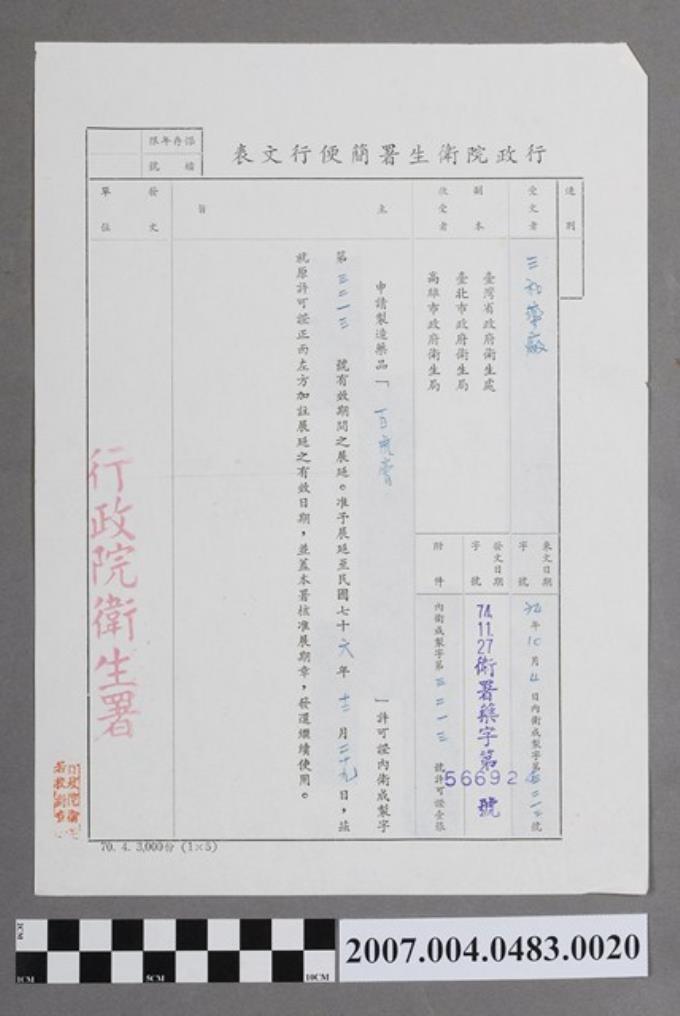 行政院衛生署簡便行文表
保存年限
檔號
速別
受文者
三
藥廠
來文日期
字號
年10月4日內衛成製字第三二一三號
副本
收受者
臺灣省政府衛生處
臺北市政府衛生局
高雄市政府衛生局
發文日期
字號
74.11.27
衛署藥字第 號
566924
附件
內衛成製字第三二一三號許可證壹張
主旨
申請製造藥品「百 膏」許可證內衛成製字
第三二一三號有效期間之展延。准予展延至民國七十六年十二月二十九日,茲
就原許可證正面左方加註展延之有效日期,並蓋本署核准展期章,發還繼續使用。
發文
單位
行政院衛生署
70. 4. 3,000份 (1×5)
2CM
1CM
5CM
10CM
2007.004.0483.0020